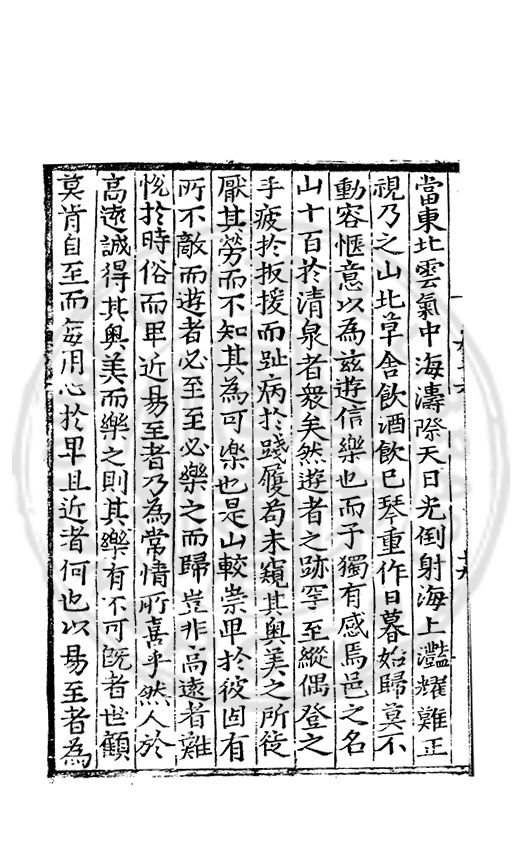 當東北雲氣中海濤際天日光倒射海上灩耀難正
視乃之山北草舍飲酒飲巳琴重作日暮始歸莫不
動容愜意以為兹遊信樂也而予獨有感焉邑之名
山十百於清泉者衆矣然遊者之跡罕至縱偶登之
手疲於扳援而趾病於踐履茍未窺其奥美之所徒
厭其勞而不知其為可樂也是山較崇卑於彼固有
所不敵而遊者必至至必樂之而歸豈非高遠者難
悅於時俗而卑近易至者乃為常情所喜乎然人於
高遠誠得其奥美而樂之則其樂有不可旣者世顧
莫肯自至而每用心於卑且近者何也以易至者為